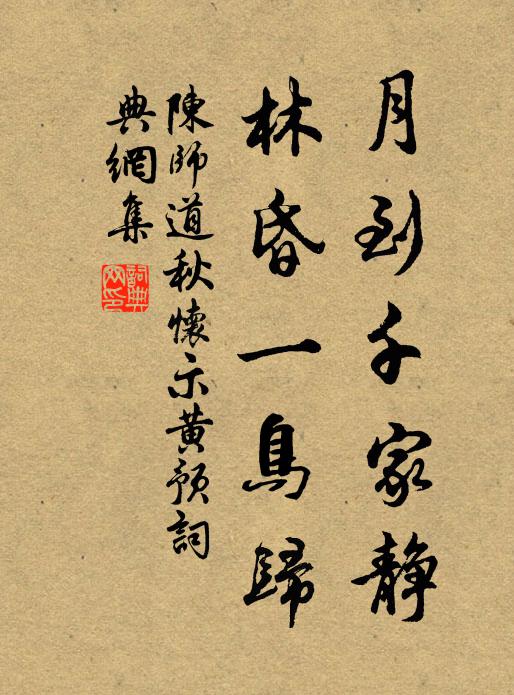 月到千家静
林昏一鳥歸
陳師道秋懷示黄預詞
典網集
詞典網印